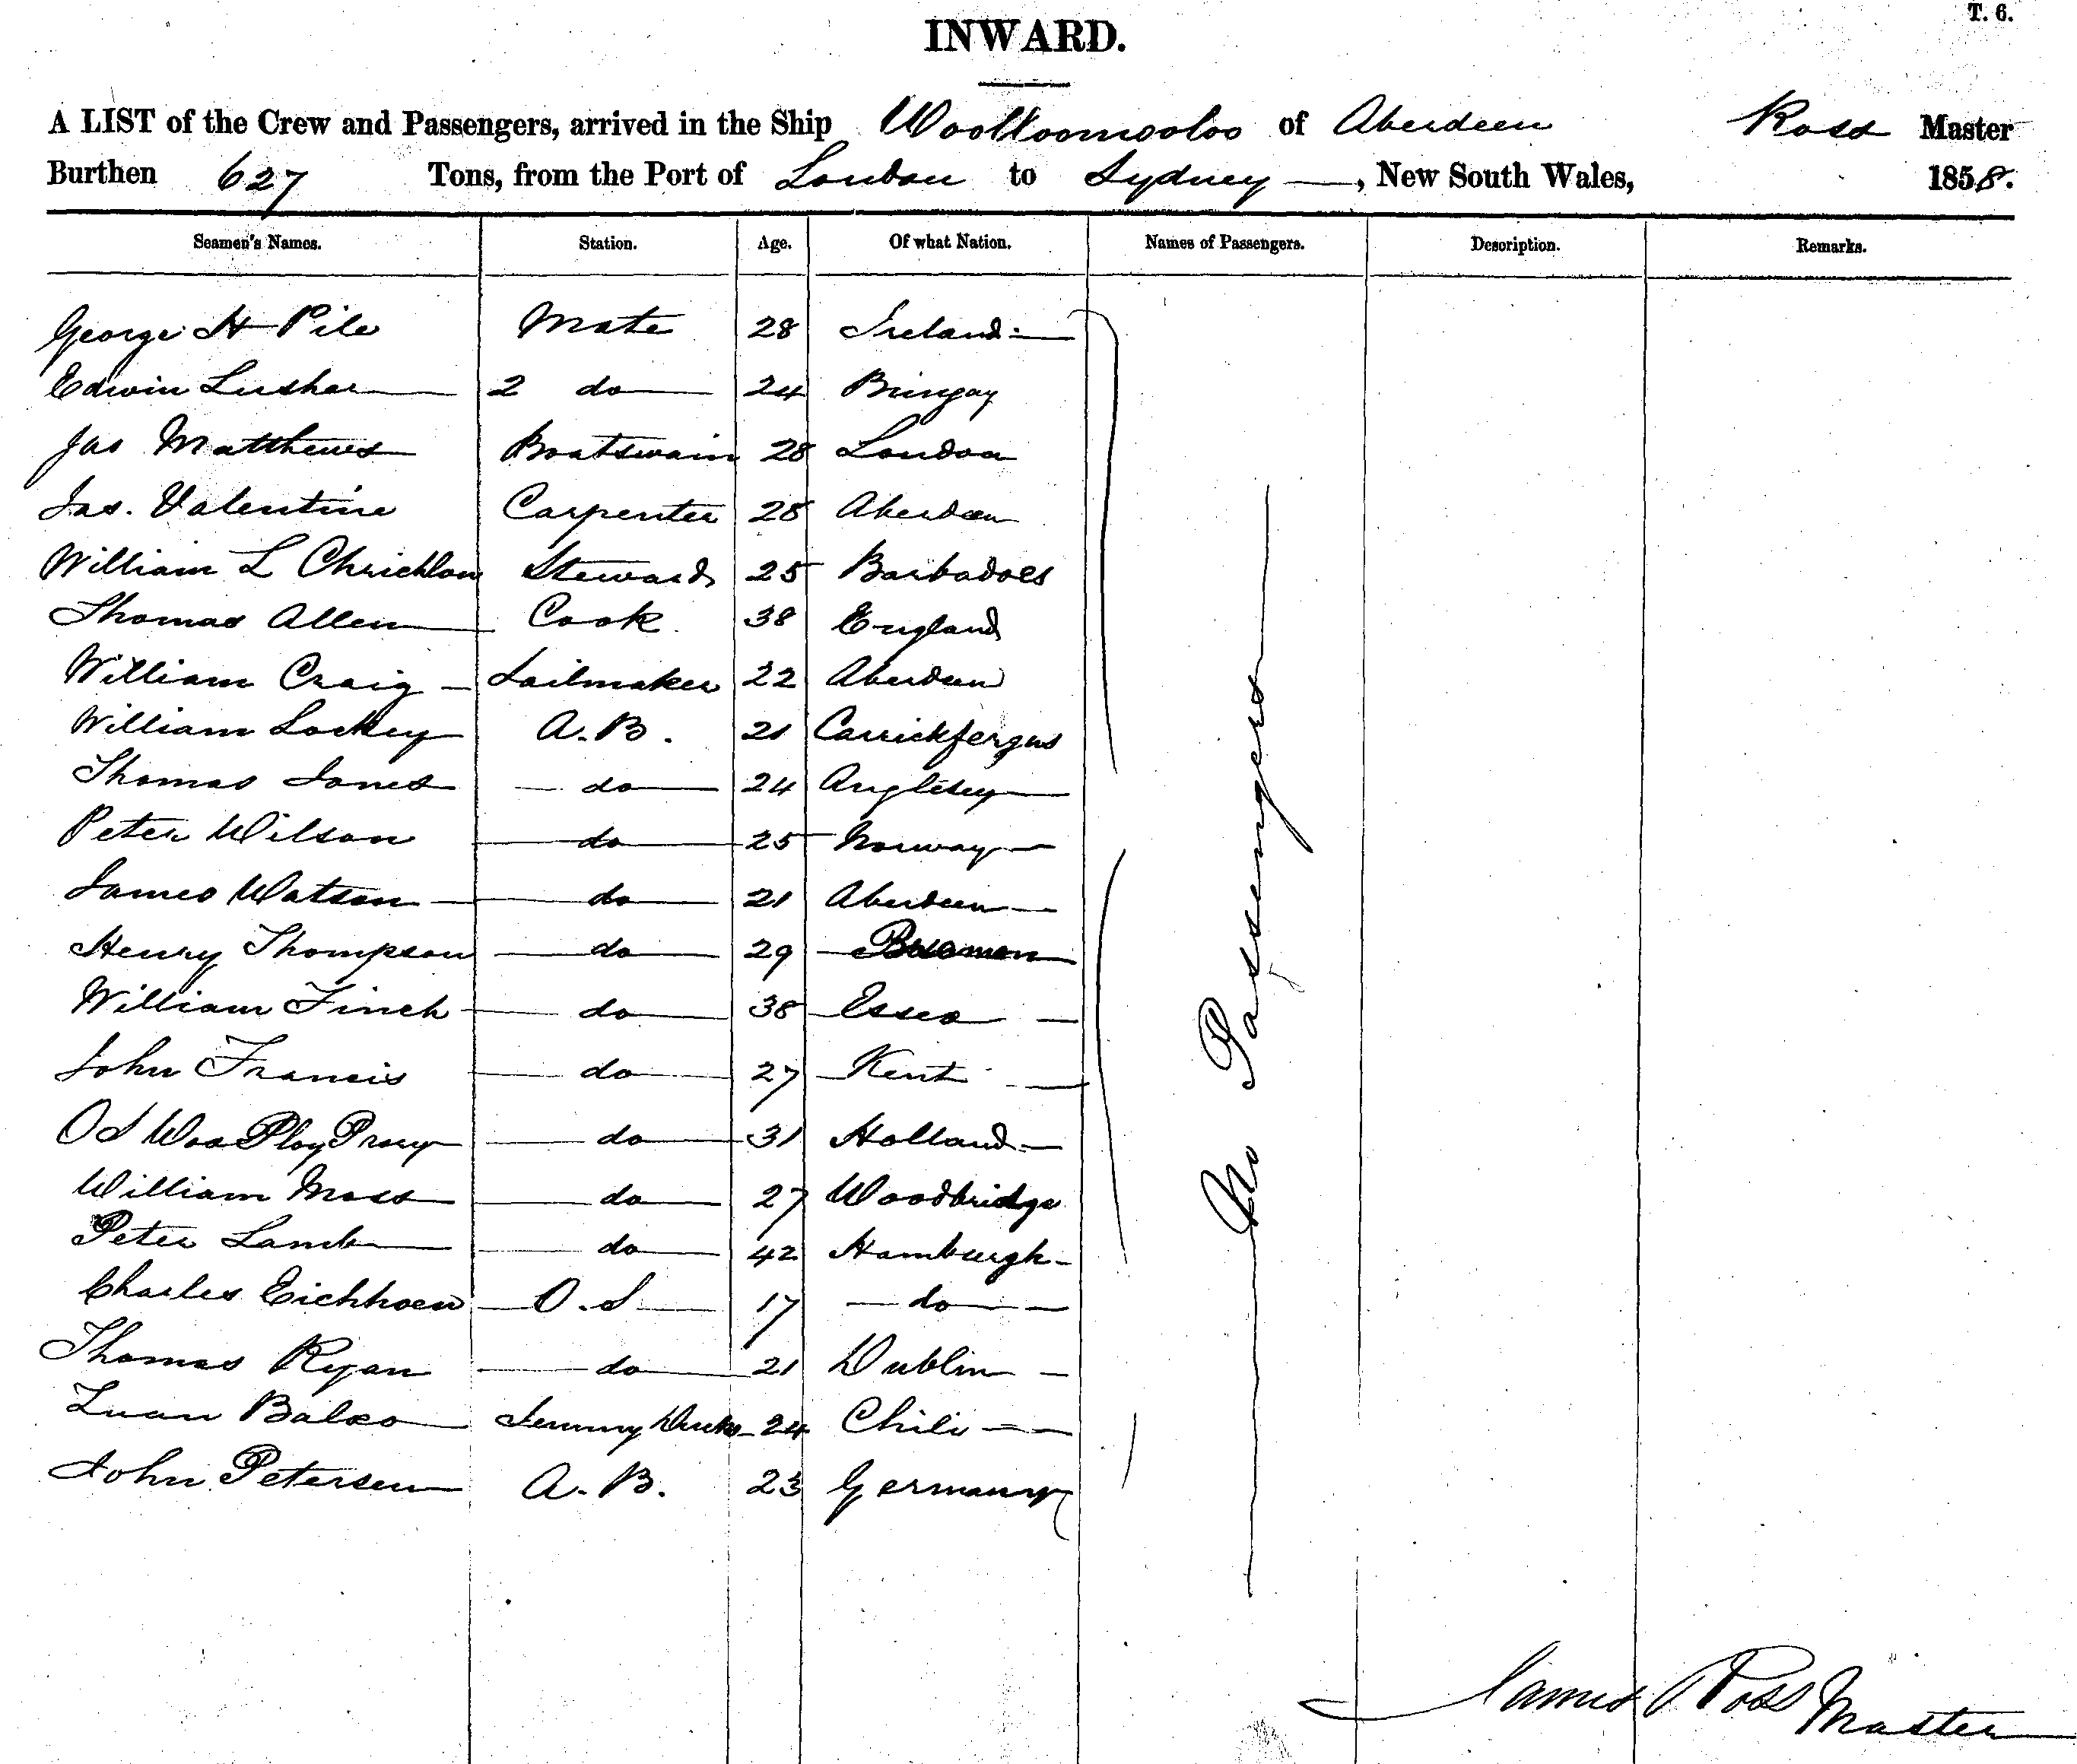 T. 6.
INWARD.
A LIST of the Crew and Passengers, arrived in the Ship Woolloomooloo of Aberdeen Ross Master
Burthen 627 Tons, from the Port of London to Sydney, New South Wales, 1858.
Seamen's Names. Station. Age. Of what Nation. Names of Passengers. Description. Remarks.
George H Pile Mate 28 Ireland
Edwin Lusher 2 do 24 Bungay
Jas Matthews Boatswain 28 London
Jas. Valentine Carpenter 28 Aberdeen
William L Chrichlow Steward 25 Barbadoes
Thomas Allen Cook 38 England
William Craig Sailmaker 22 Aberdeen
William Lockey A.B. 21 Carrickfergus
Thomas Jones do 24 Anglesey
Peter Wilson do 25 Norway
James Watson do 21 Aberdeen
Henry Thompson do 29
William Finch do 38 Essex
John Francis do 27 Kent
do 31 Holland
William Moss do 27 Woodbridge
Peter Lamb do 42 Hamburgh
Charles Eichhoen O.S 17 do
Thomas Ryan do 21 Dublin
Balso Jemmy Ducks 24 Chili
John Petersen A.B. 23 Germany
No Passengers
James Ross Master